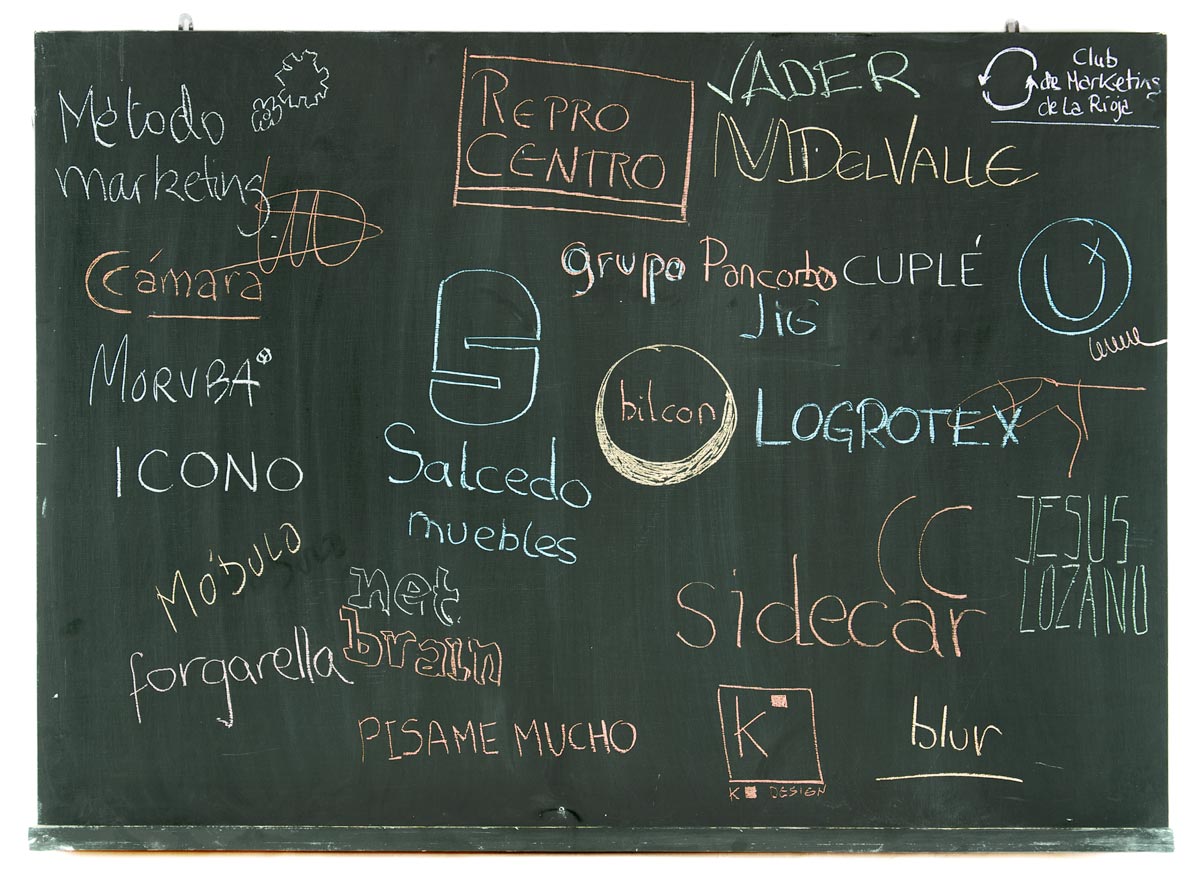 Método
marketing
REPRO
CENTRO
VADER
MDELVALLE
Club
de Marketing
de La Rioja
Cámara
grupo Pancorbo
JIG
CUPLÉ
MORUBA
S
Salcedo
muebles
bilcon
LOGROTEX
ICONO
MÓBULO
net
brain
forgarella
CC
sidecar
JESUS
LOZANO
PISAME MUCHO
K
K DESIGN
blur